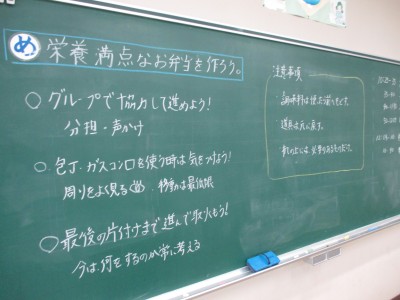 め 栄養満点なお弁当を作ろう。
○グループで協力して進めよう!
分担・声かけ
○包丁・ガスコンロを使う時は気をつけよう!
周りをよく見る 移動は最低限
○最後の片付けまで進んで取りくもう!
今は何をするのか常に考える
注意事項
・調味料は使った後もどす。
・道具は元に戻す。